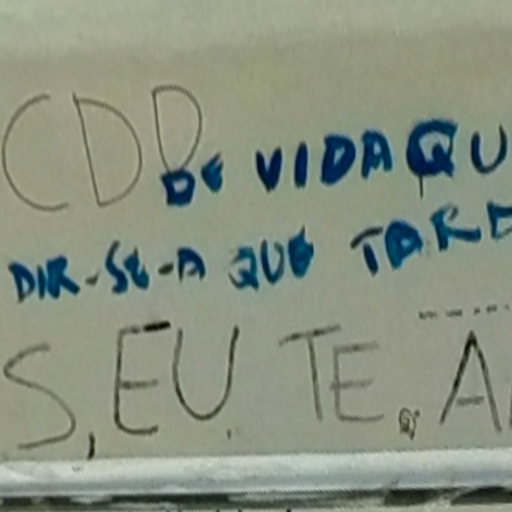 CDD
DE VIDA QU
DIR-SE-A QUE TARD
S, EU TE A